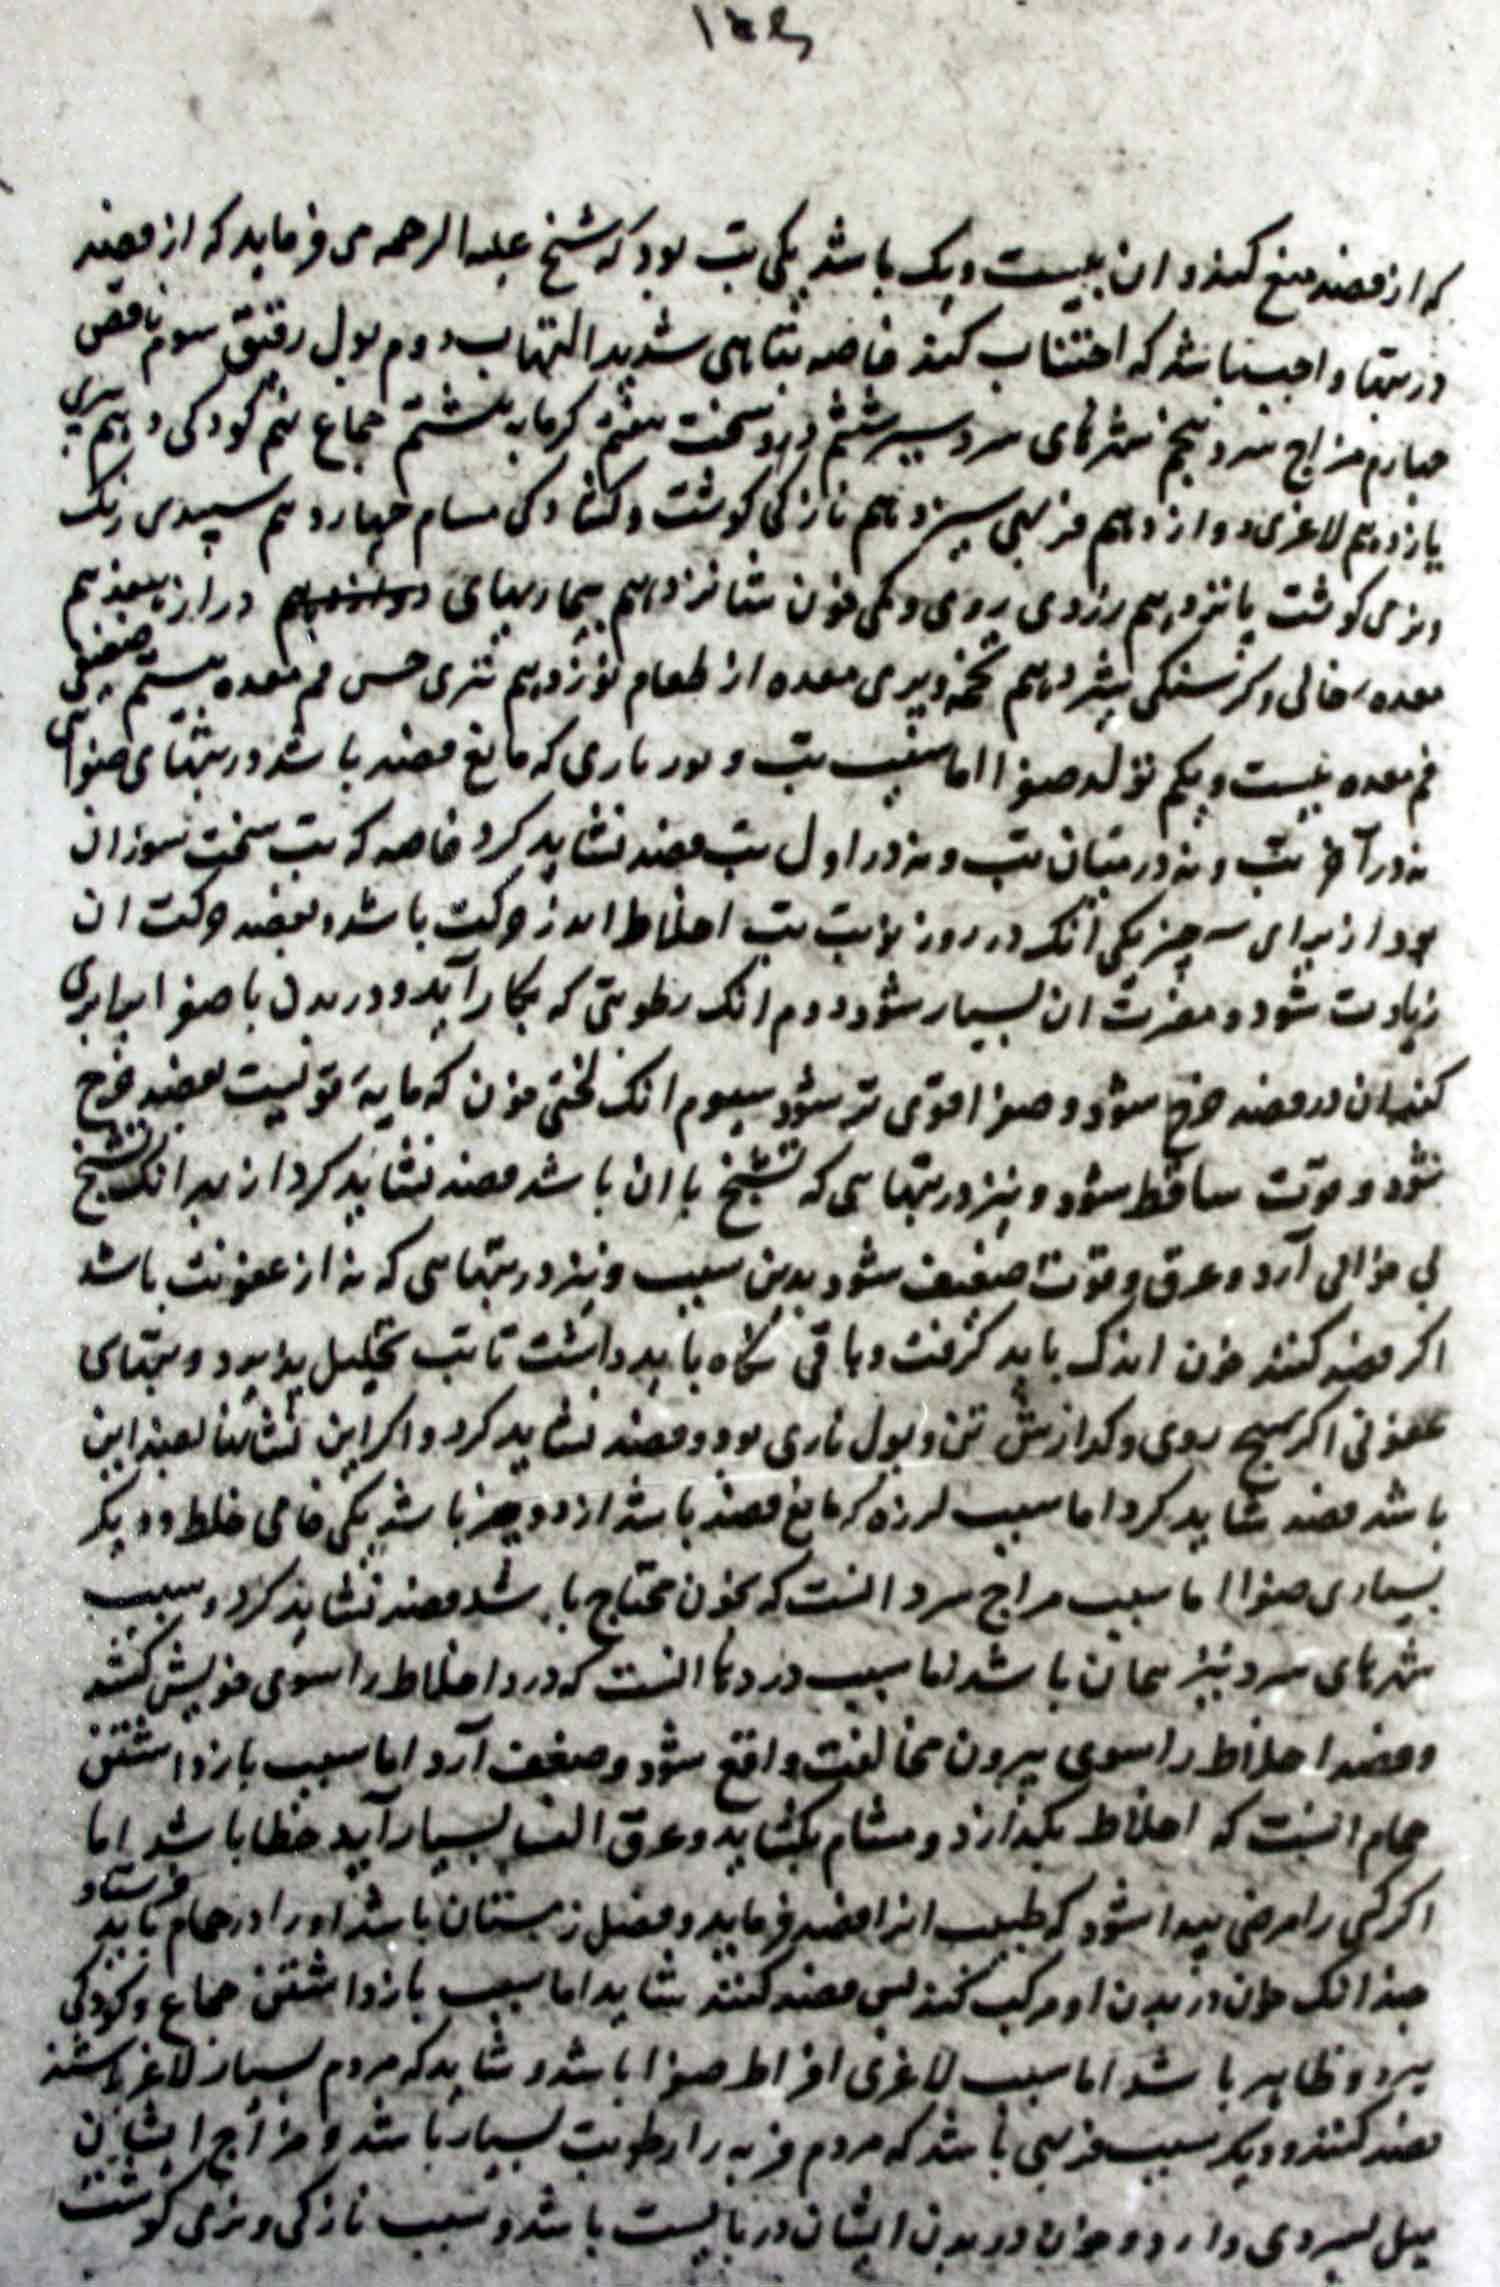 ۱۴۶
که از فصد منع کند و ان بیست و یک باشد یکی تب بود که شیخ علیه الرحمه می فرماید که از فصد
در تبها واجب باشد که اجتناب کنند خاصه تبهای شدید التهاب دوم بول رقیق سوم ناقص
چهارم مزاج سرد پنجم شهرهای سرد سیر ششم درد سخت هفتم کرمابه هشتم جماع نهم کودکی دهم پیری
یازدهم لاغری دوازدهم فربهی سیزدهم نازکی کوشت و کشادکی مسام چهاردهم سپیدی رنک
ونرمی کوشت پانزدهم زردی روی وکمی خون شانزدهم بیماریهای دراز هفدهم
معده خالی و کرسنکی هژدهم تخمه وپری معده از طعام نوزدهم تیزی حس فم معده بیستم ضعیفی
فم معده بیست ویکم تولد صفرا اما سبب تب و بول ناری که مانع فصد باشد در تبهای صفراوی
نه در آخر تب و نه در میان تب و نه در اول تب فصد نشاید کرد خاصه که تب سخت سوزان
بود از برای سه چیز یکی آنک در روز نوبت تب اخلاط اندر حرکت باشد و بفصد حرکت ان
زیادت شود و مضرت ان بسیار شود دوم انک رطوبتی که بکار آید و در بدن با صفرا برابری
کند ان در فصد خرج شود و صفرا قوی تر شود سیوم انک لختی خون که مایه قوتیست بفصد خرج
شود و قوت ساقط شود و نیز در تبهایی که تشنج با ان باشد فصد نشاید کرد از بهر انک تشنج
بی خوابی آرد و عرق و قوت ضعیف شود بدین سبب و نیز در تبهایی که نه از عفونت باشد
اکر فصد کنند خون اندک باید کرفت وباقی نکاه باید داشت تا تب تحلیل پذیرد و تبهای
عفونی اکر تهیج روی و کدازش تن و بول ناری بود فصد نشاید کرد و اکر این نشانها بضد این
باشد فصد شاید کرد اما سبب لرزه که مانع فصد باشد از دو چیز باشد یکی خامی خلط و دیکر
بسیاری صفرا اما سبب مزاج سرد انست که بخون محتاج باشد فصد نشاید کرد و سبب
شهرهای سرد نیز همان باشد اما سبب دردها انست که درد اخلاط را سوی خویش کشد
و فصد اخلاط را سوی بیرون مخالفت واقع شود و ضعف آرد اما سبب بازداشتن
حمام انست که اخلاط بکدازد و مسام بکشاید و عرق بسیار آید خطا باشد اما
اکر کسی را مرضی پیدا شود که طبیب انرا فصد فرماید و فصل زمستان باشد او را در حمام باید فرستاد
چندانک خون در بدن او حرکت کند پس فصد کنند شاید اما سبب بازداشتن جماع و کودکی
پیری ظاهر باشد اما سبب لاغری افراط صفرا باشد و شاید که مردم بسیار لاغر باشند
فصد کنند و دیکر سبب فربهی باشد که مردم فربه را رطوبت بسیار باشد و مزاج ایشان
میل بسردی دارد و خون در بدن ایشان دربایست باشد و سبب نازکی و نرمی کوشت